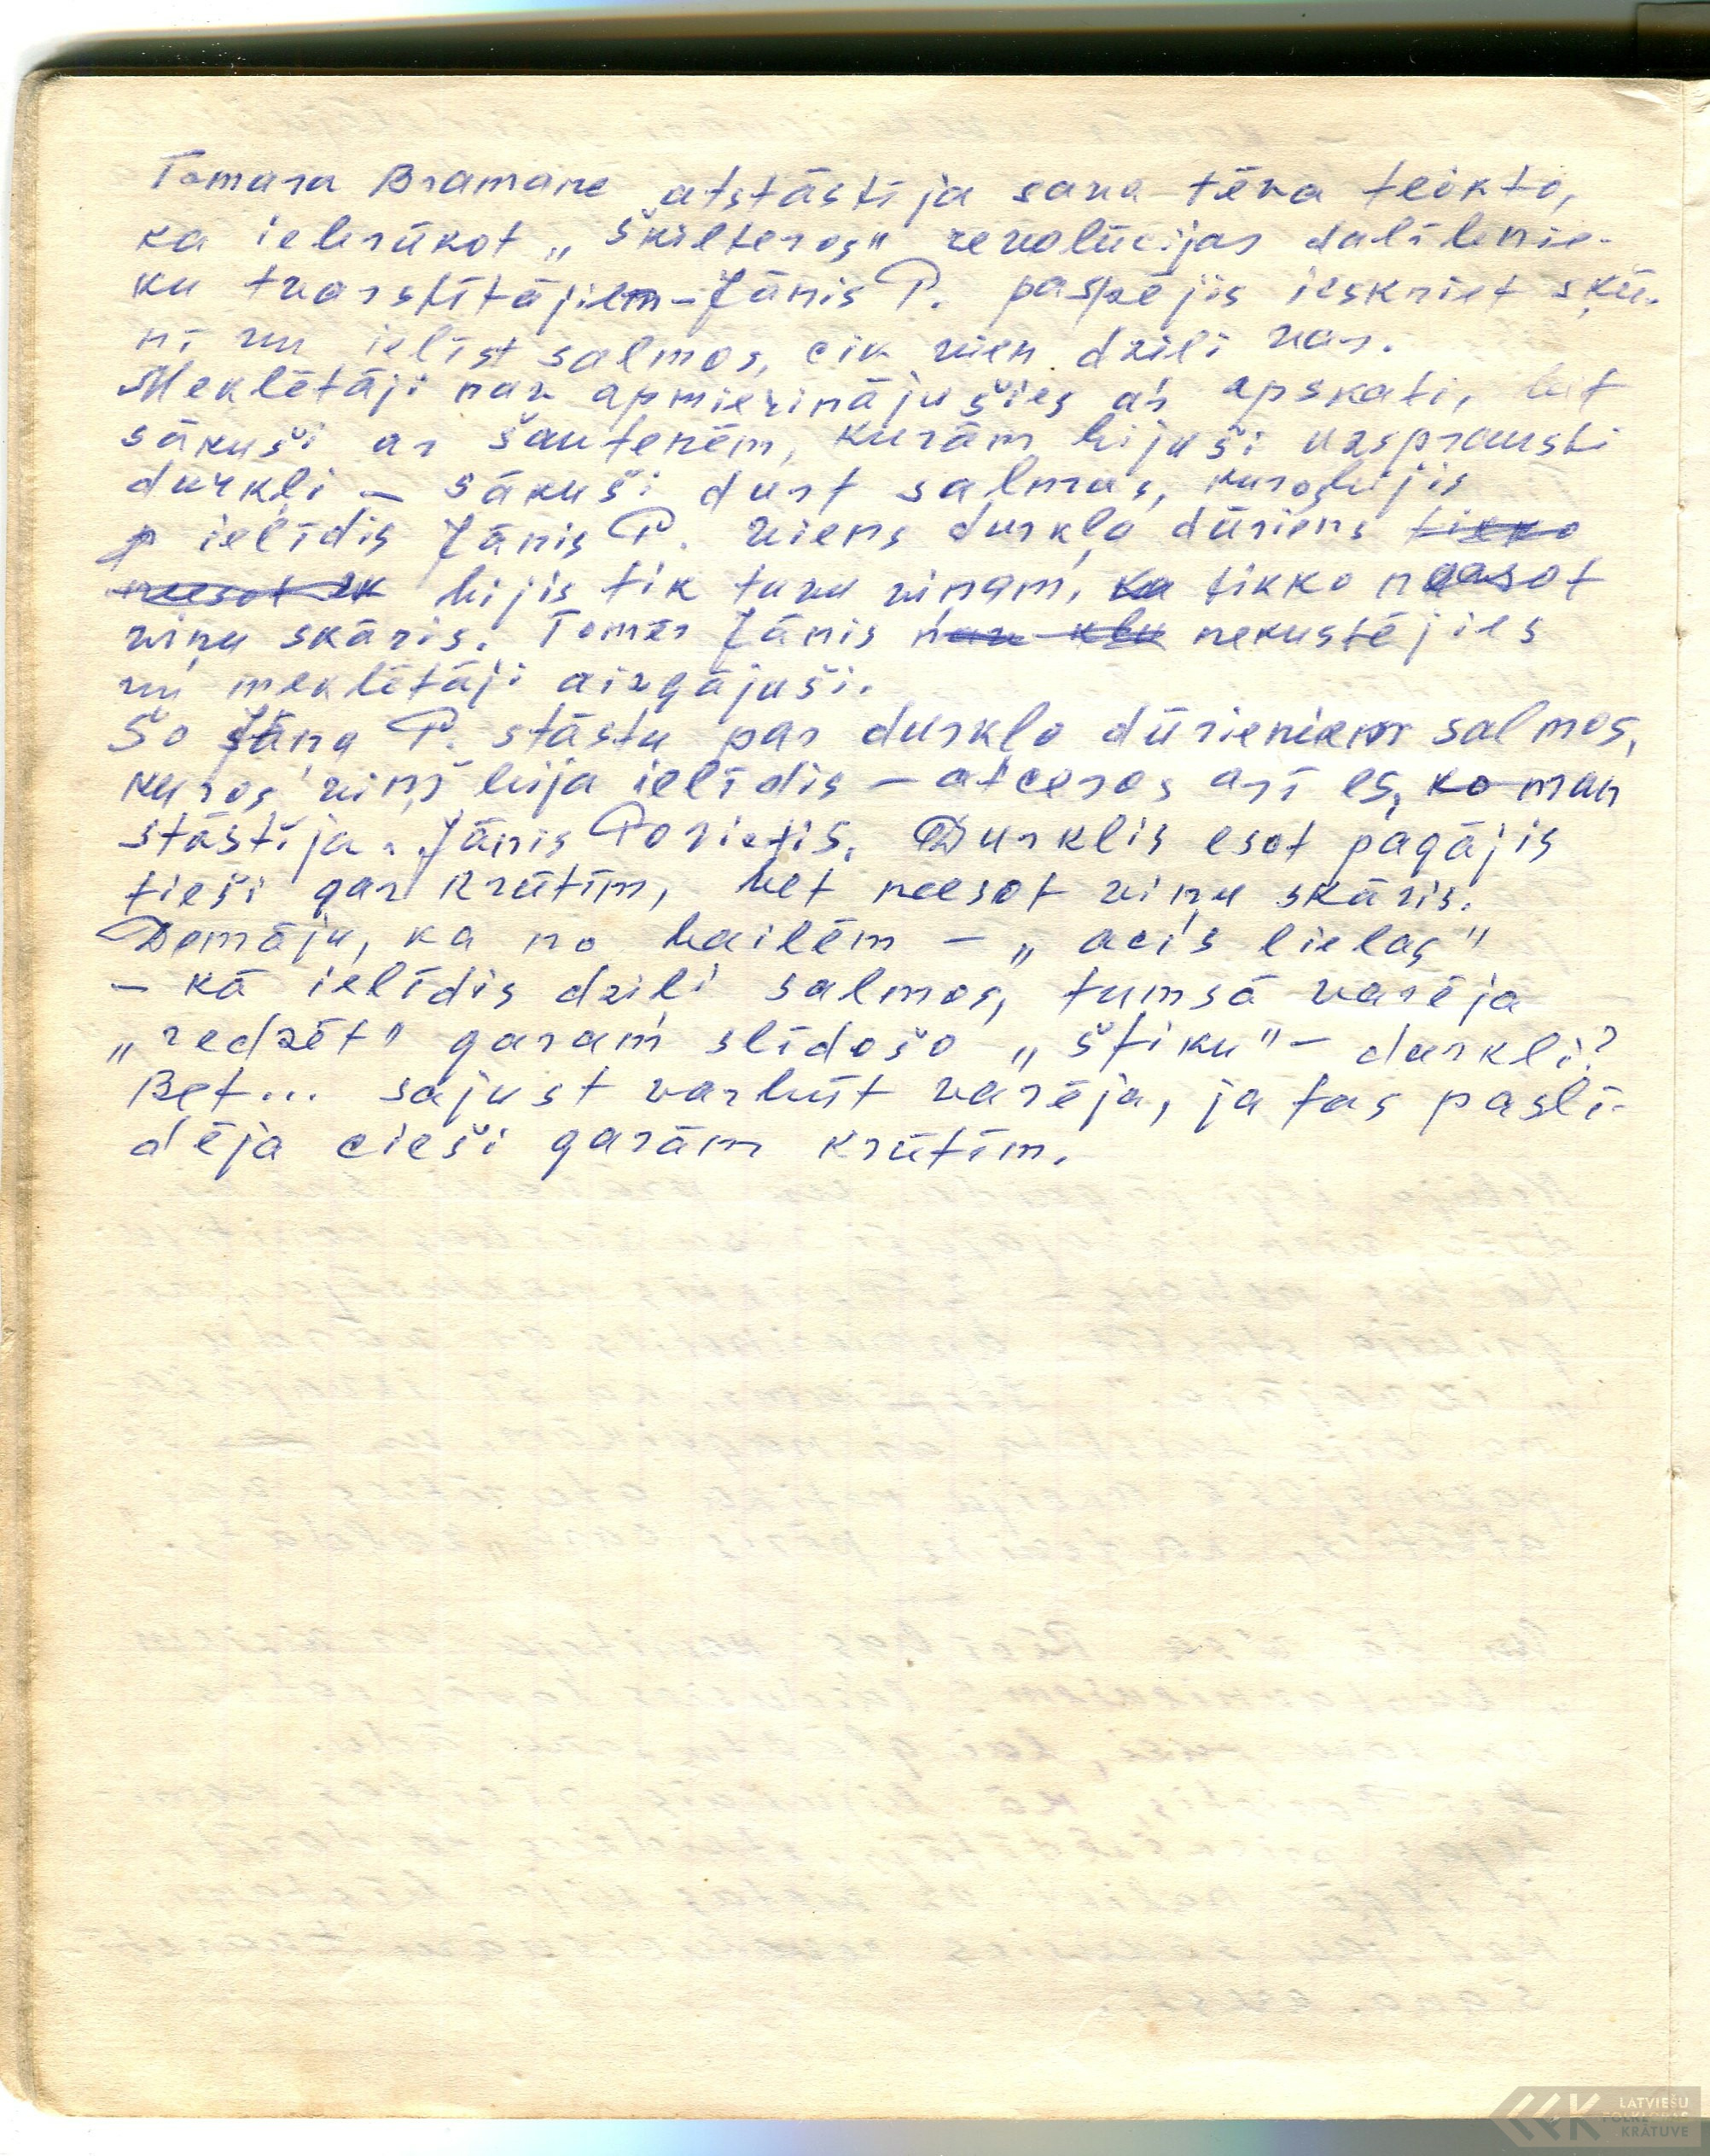 Tamara Bramane atstāstīja sava tēva teikto,
ka iebrūkot „Šķilteros" revolūcijas dalībnie-
ku tvarstītājiem – Jānis P. paspējis ieskriet šķū-
nī un ielīst salmos, cik vien dziļi var.
Meklētāji nav apmierinājušies ar apskati, bet
sākuši ar šautenēm, kurām bijuši uzsprausti
durkļi – sākuši durt salmos, kuros bijis
ielīdis Jānis P. Viens durkļa dūriens tikko
neesot bijis tik tuvu viņam, ka tikko neesot
viņu skāris. Tomēr Jānis nav nekustējies
un meklētāji aizgājuši.
Šo Jāņa P. stāstu par durkļa dūrieniem salmos,
kuros viņš bija ielīdis – atceros arī es, ko man
stāstīja Jānis Porietis. Durklis esot pagājis
tieši gar krūtīm, bet neesot viņu skāris.
Domāju, ka no bailēm – „acis lielas"
– kā ielīdis dziļi salmos, tumsā varēja
„redzēt" garām slīdošo „štiku" – durkli?
Bet... sajust varbūt varēja, ja tas paslī-
dēja cieši garām krūtīm.
LATVIEŠU
FOLKLORAS
KRĀTUVE